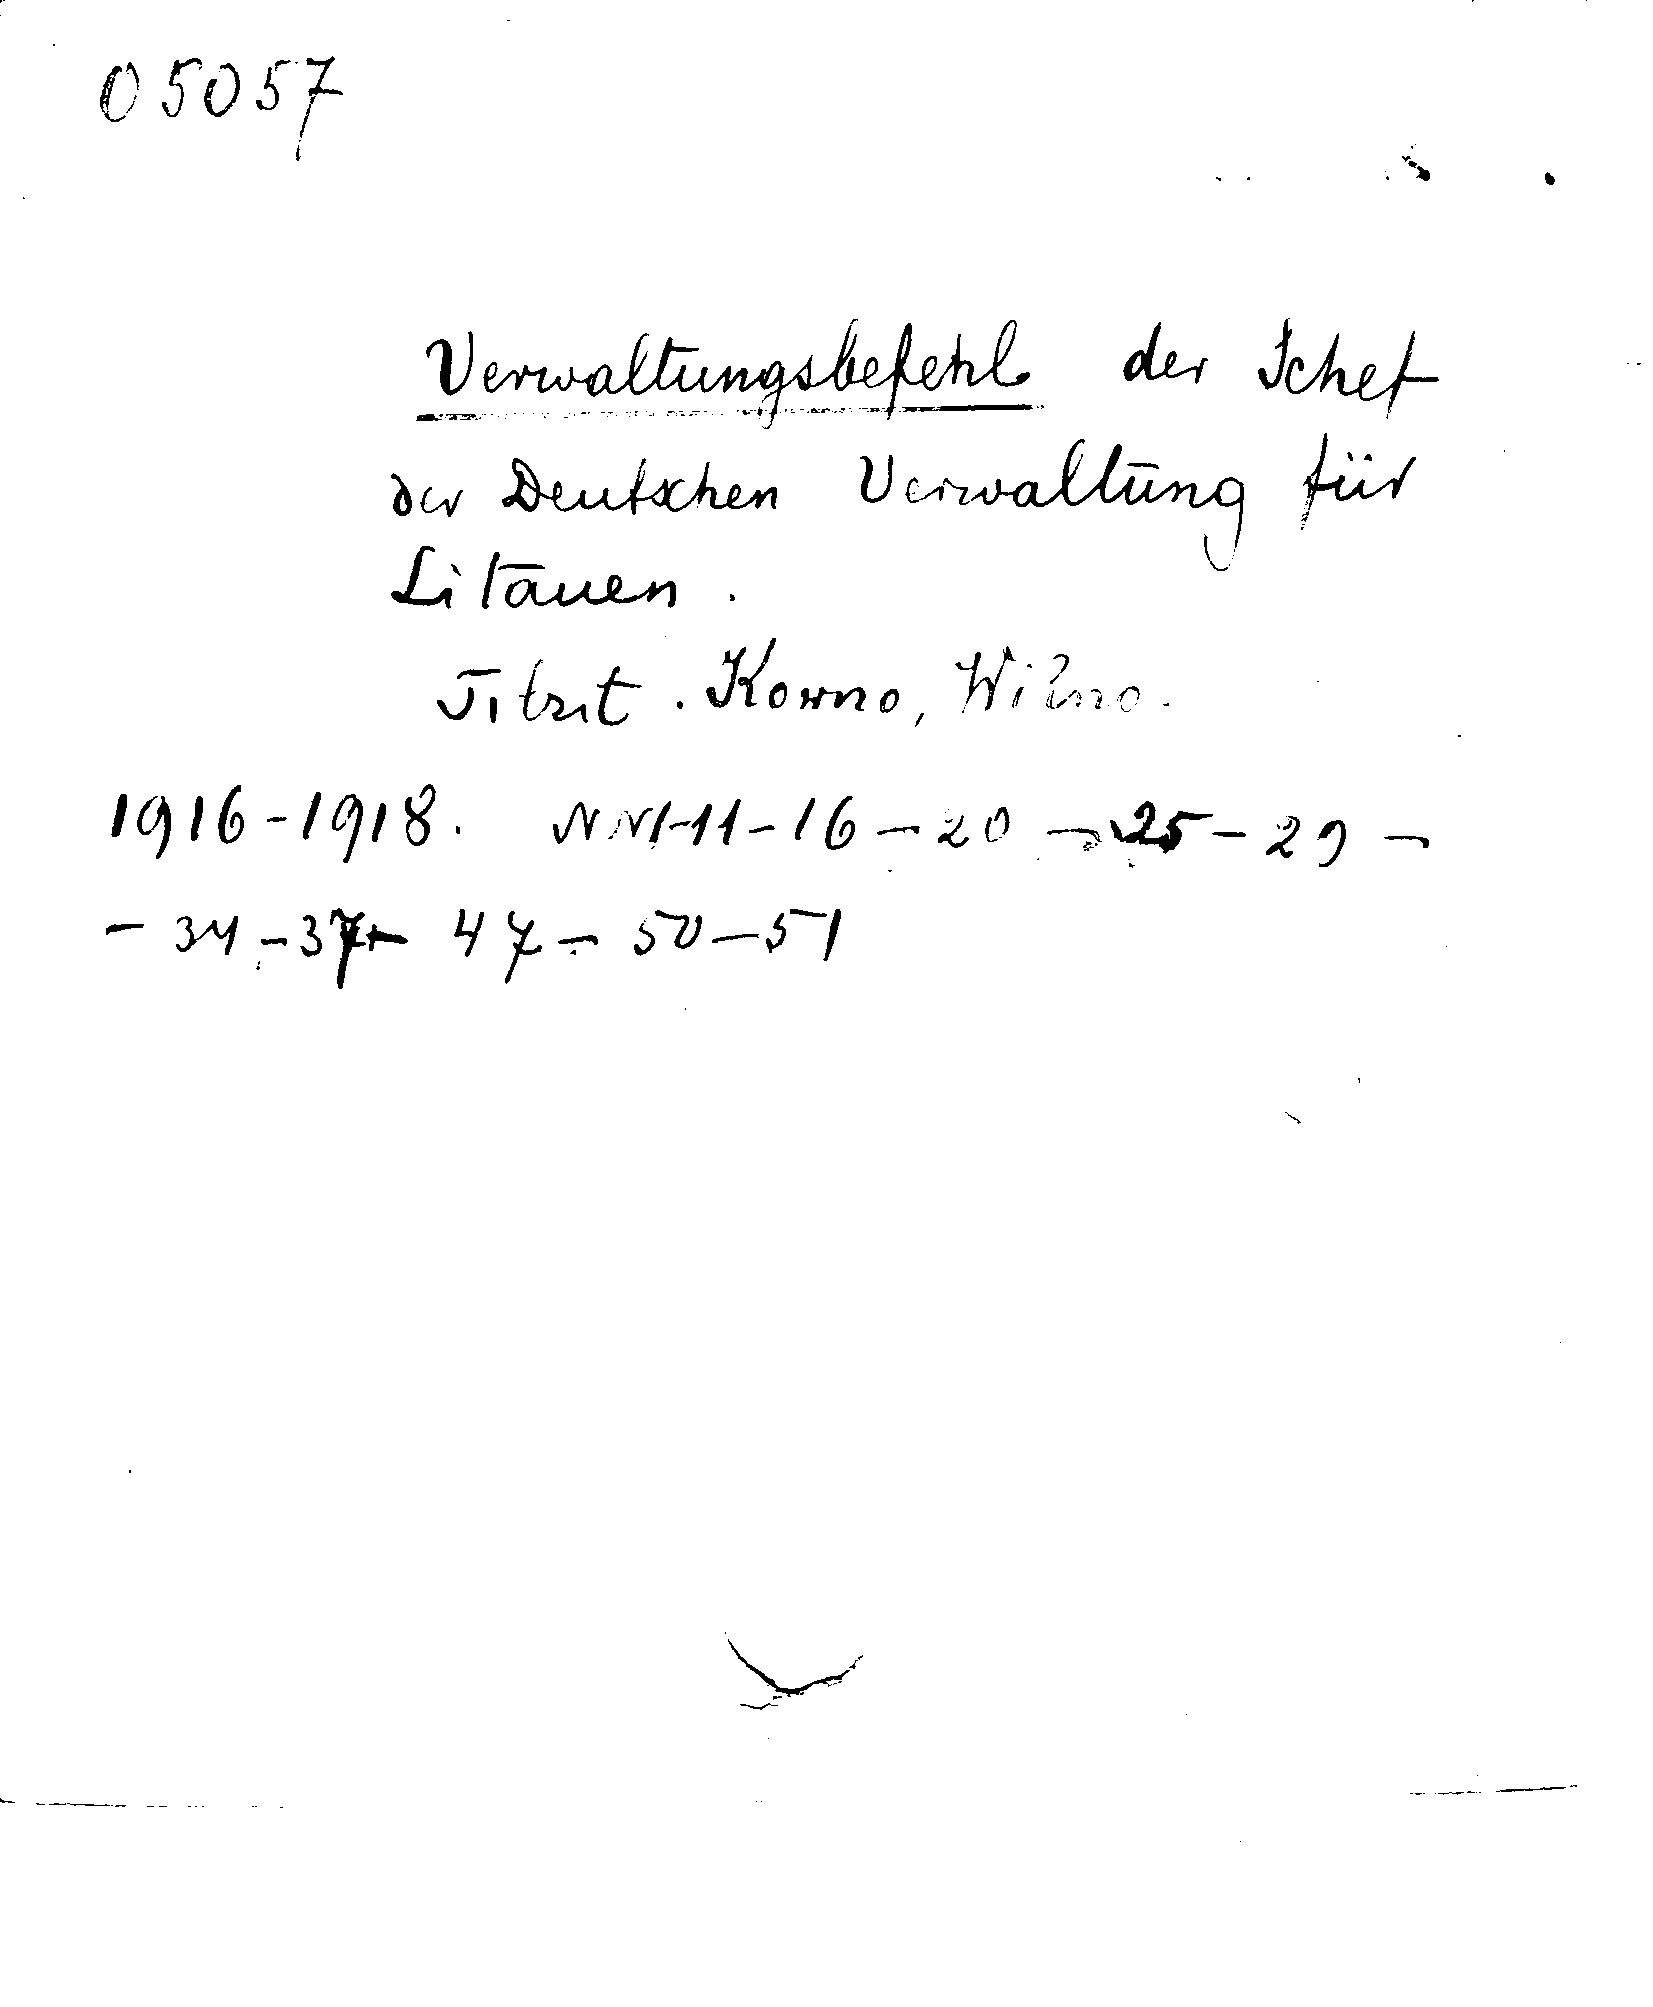 05057
Verwaltungsbefehl der Schef
der Deutschen Verwaltung für
Litauen.
Tilzit. Kowno, Wilno.
1916-1918. NN1-11-16-20-25-29-
-34-37-47-50-51